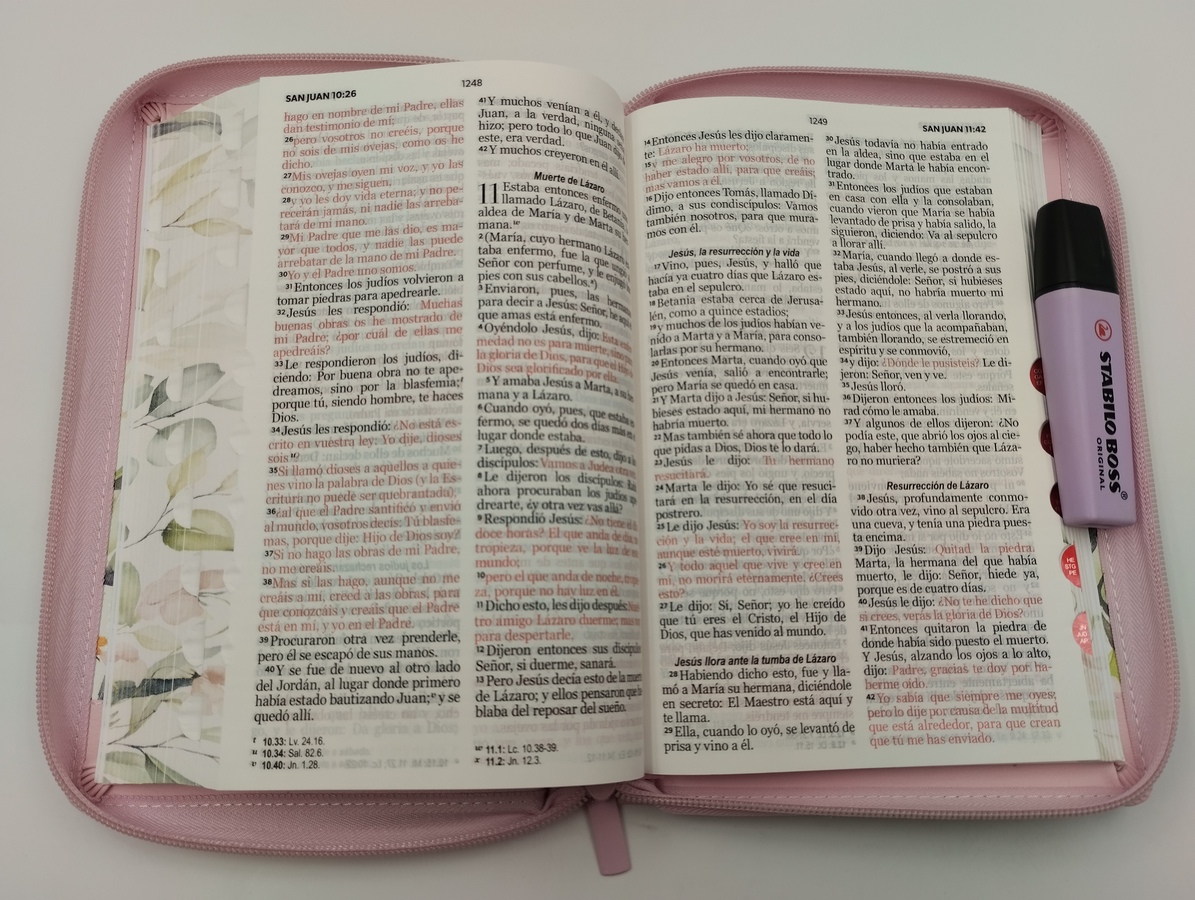 SAN JUAN 10:26
1248
hago en nombre de mi Padre, ellas
dan testimonio de mí;
26pero vosotros no creéis, porque
no sois de mis ovejas, como os he
dicho.
27Mis ovejas oyen mi voz, y yo las
conozco, y me siguen,
28y yo les doy vida eterna; y no pe-
recerán jamás, ni nadie las arreba-
tará de mi mano.
29Mi Padre que me las dio, es ma-
yor que todos, y nadie las puede
arrebatar de la mano de mi Padre.
30Yo y el Padre uno somos.
31Entonces los judíos volvieron a
tomar piedras para apedrearle.
32Jesús les respondió: Muchas
buenas obras os he mostrado de
mi Padre; ¿por cuál de ellas me
apedreáis?
33Le respondieron los judíos, di-
ciendo: Por buena obra no te ape-
dreamos, sino por la blasfemia;t
porque tú, siendo hombre, te haces
Dios.
34Jesús les respondió: ¿No está es-
crito en vuestra ley: Yo dije, dioses
sois?u
35Si llamó dioses a aquellos a quie-
nes vino la palabra de Dios (y la Es-
critura no puede ser quebrantada),
36¿al que el Padre santificó y envió
al mundo, vosotros decís: Tú blasfe-
mas, porque dije: Hijo de Dios soy?
37Si no hago las obras de mi Padre,
no me creáis.
38Mas si las hago, aunque no me
creáis a mí, creed a las obras, para
que conozcáis y creáis que el Padre
está en mí, y yo en el Padre.
39Procuraron otra vez prenderle,
pero él se escapó de sus manos.
40Y se fue de nuevo al otro lado
del Jordán, al lugar donde primero
había estado bautizando Juan;v y se
quedó allí.
t 10.33: Lv. 24.16.
u 10.34: Sal. 82.6.
v 10.40: Jn. 1.28.
41Y muchos venían a él, y
Juan, a la verdad, ninguna
hizo; pero todo lo que Juan
este, era verdad.
42Y muchos creyeron en él allí.
Muerte de Lázaro
11 Estaba entonces enfermo
llamado Lázaro, de Betania
aldea de María y de Marta su
mana.w
2(María, cuyo hermano Lázaro
taba enfermo, fue la que ungió
Señor con perfume, y le enjugó
pies con sus cabellos.x)
3Enviaron, pues, las
para decir a Jesús: Señor, he aquí
que amas está enfermo.
4Oyéndolo Jesús, dijo: Esta
medad no es para muerte, sino
la gloria de Dios, para que el
Dios sea glorificado por ella.
5Y amaba Jesús a Marta, a su
mana y a Lázaro.
6Cuando oyó, pues, que estaba
fermo, se quedó dos días más
lugar donde estaba.
7Luego, después de esto, dijo a
discípulos: Vamos a Judea
8Le dijeron los discípulos:
ahora procuraban los judíos
drearte, ¿y otra vez vas allá?
9Respondió Jesús: ¿No tiene
doce horas? El que anda de día,
tropieza, porque ve la luz de
mundo;
10pero el que anda de noche,
za, porque no hay luz en él.
11Dicho esto, les dijo después:
tro amigo Lázaro duerme; mas
para despertarle.
12Dijeron entonces sus
Señor, si duerme, sanará.
13Pero Jesús decía esto de la
de Lázaro; y ellos pensaron que
blaba del reposar del sueño.
w 11.1: Lc. 10.38-39.
x 11.2: Jn. 12.3.
1249
SAN JUAN 11:42
14Entonces Jesús les dijo claramen-
te: Lázaro ha muerto;
15y me alegro por vosotros, de no
haber estado allí, para que creáis;
mas vamos a él.
16Dijo entonces Tomás, llamado Dí-
dimo, a sus condiscípulos: Vamos
también nosotros, para que mura-
mos con él.
Jesús, la resurrección y la vida
17Vino, pues, Jesús, y halló que
hacía ya cuatro días que Lázaro es-
taba en el sepulcro.
18Betania estaba cerca de Jerusa-
lén, como a quince estadios;
19y muchos de los judíos habían ve-
nido a Marta y a María, para conso-
larlas por su hermano.
20Entonces Marta, cuando oyó que
Jesús venía, salió a encontrarle;
pero María se quedó en casa.
21Y Marta dijo a Jesús: Señor, si hu-
bieses estado aquí, mi hermano no
habría muerto.
22Mas también sé ahora que todo lo
que pidas a Dios, Dios te lo dará.
23Jesús le dijo: Tu hermano
resucitará.
24Marta le dijo: Yo sé que resuci-
tará en la resurrección, en el día
postrero.
25Le dijo Jesús: Yo soy la resurrec-
ción y la vida; el que cree en mí,
aunque esté muerto, vivirá.
26Y todo aquel que vive y cree en
mí, no morirá eternamente. ¿Crees
esto?
27Le dijo: Sí, Señor; yo he creído
que tú eres el Cristo, el Hijo de
Dios, que has venido al mundo.
Jesús llora ante la tumba de Lázaro
28Habiendo dicho esto, fue y lla-
mó a María su hermana, diciéndole
en secreto: El Maestro está aquí y
te llama.
29Ella, cuando lo oyó, se levantó de
prisa y vino a él.
30Jesús todavía no había entrado
en la aldea, sino que estaba en el
lugar donde Marta le había encon-
trado.
31Entonces los judíos que estaban
en casa con ella y la consolaban,
cuando vieron que María se había
levantado de prisa y había salido, la
siguieron, diciendo: Va al sepulcro
a llorar allí.
32María, cuando llegó a donde es-
taba Jesús, al verle, se postró a sus
pies, diciéndole: Señor, si hubieses
estado aquí, no habría muerto mi
hermano.
33Jesús entonces, al verla llorando,
y a los judíos que la acompañaban,
también llorando, se estremeció en
espíritu y se conmovió,
34y dijo: ¿Dónde le pusisteis? Le di-
jeron: Señor, ven y ve.
35Jesús lloró.
36Dijeron entonces los judíos: Mi-
rad cómo le amaba.
37Y algunos de ellos dijeron: ¿No
podía este, que abrió los ojos al cie-
go, haber hecho también que Láza-
ro no muriera?
Resurrección de Lázaro
38Jesús, profundamente conmo-
vido otra vez, vino al sepulcro. Era
una cueva, y tenía una piedra pues-
ta encima.
39Dijo Jesús: Quitad la piedra.
Marta, la hermana del que había
muerto, le dijo: Señor, hiede ya,
porque es de cuatro días.
40Jesús le dijo: ¿No te he dicho que
si crees, verás la gloria de Dios?
41Entonces quitaron la piedra de
donde había sido puesto el muerto.
Y Jesús, alzando los ojos a lo alto,
dijo: Padre, gracias te doy por ha-
berme oído.
42Yo sabía que siempre me oyes;
pero lo dije por causa de la multitud
que está alrededor, para que crean
que tú me has enviado.
STABILO BOSS®
ORIGINAL
HE
STG
PE
JN
JUD
AP